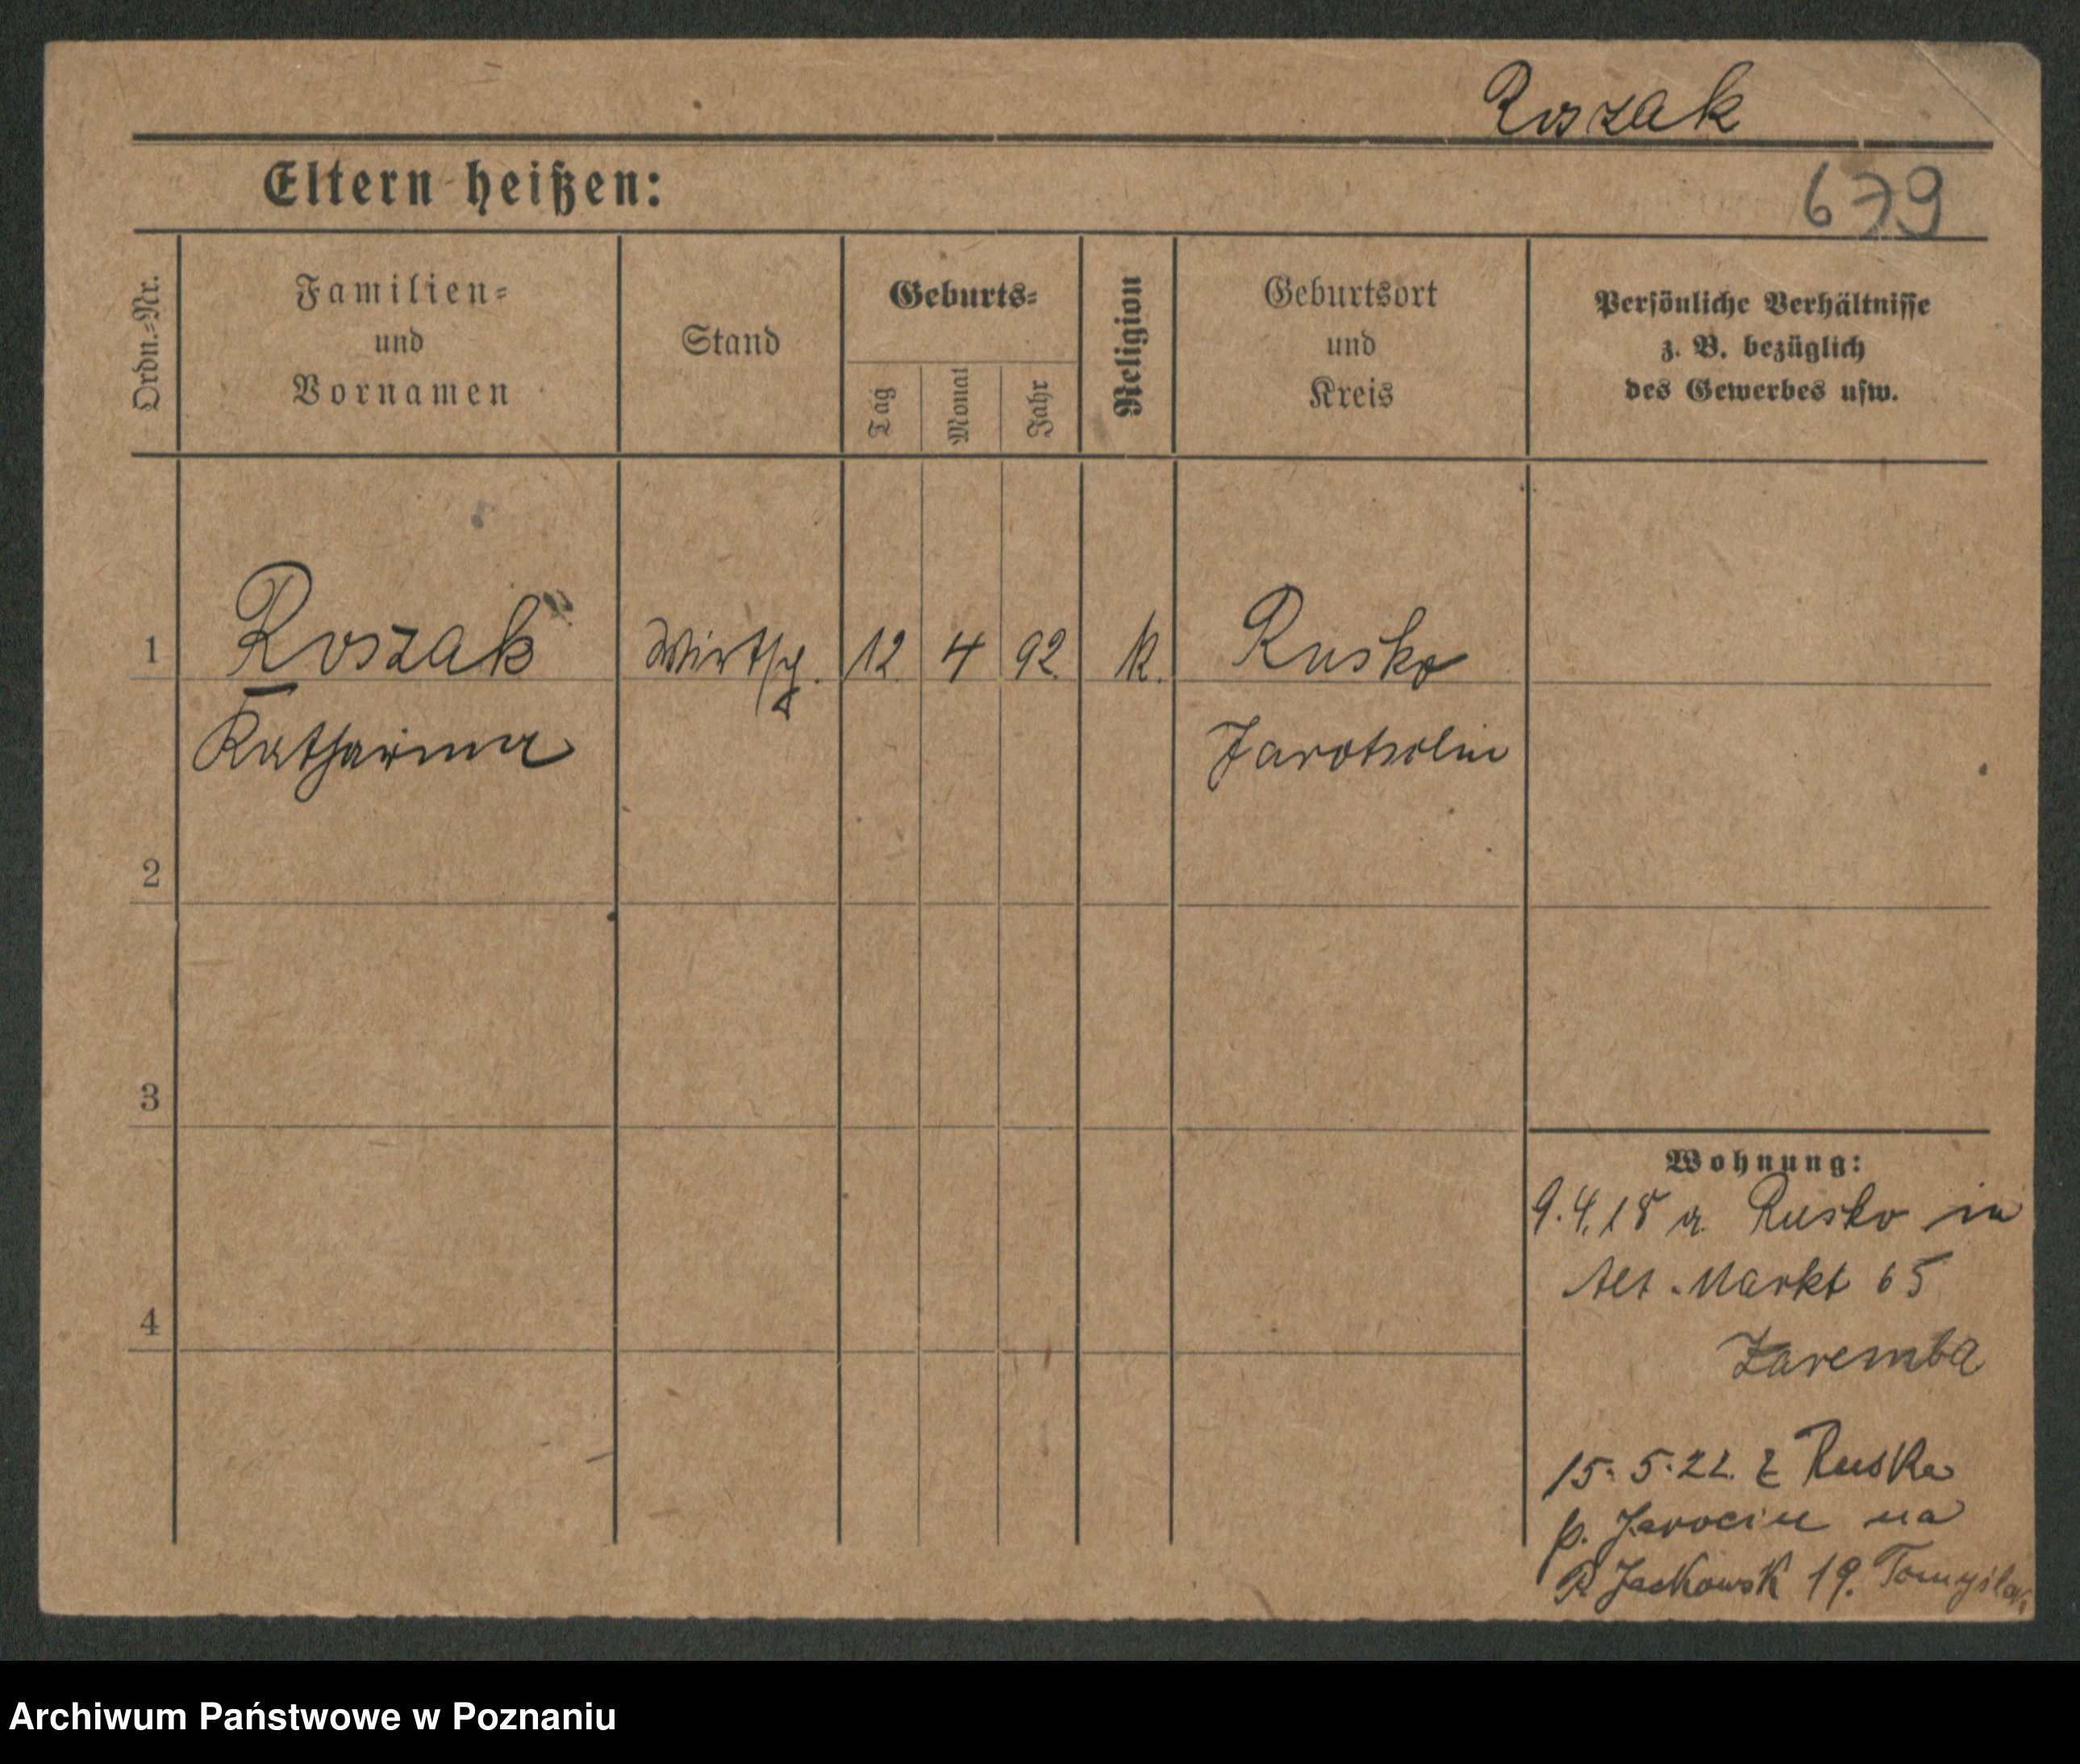 Roszak
Eltern heißen:
679
Ordn.=Nr.
Familien=
und
Vornamen
Stand
Geburts=
Tag
Monat
Jahr
Religion
Geburtsort
und
Kreis
Persönliche Verhältnisse
z. B. bezüglich
des Gewerbes usw.
1
Roszak
Wirtsch.
12
4
92
K.
Rusko
Katharina
Jarotschin
2
3
4
Wohnung:
9.4.18 a. Rusko in
Alt. Markt 65
Zaremba
15. 5. 22. z Ruska
p. Jarocin na
Jackowsk 19.
Archiwum Państwowe w Poznaniu